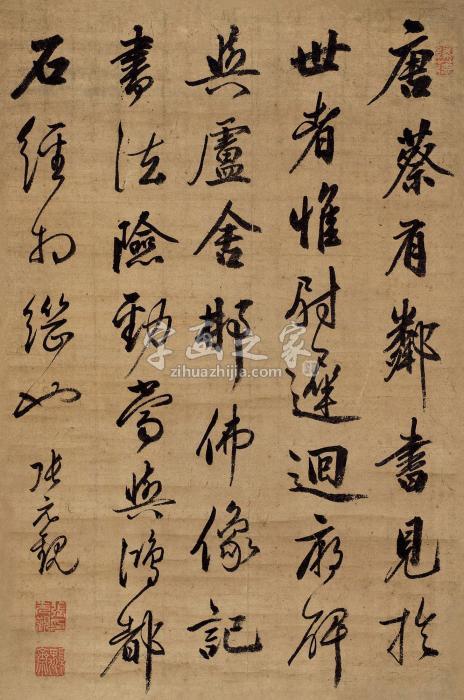 唐蔡有鄰書見於
世者惟尉遲迴廟碑
與盧舍那佛像記
書法險勁當與鴻都
石經相繼也
張元
字画之家
zihuazhijia.com